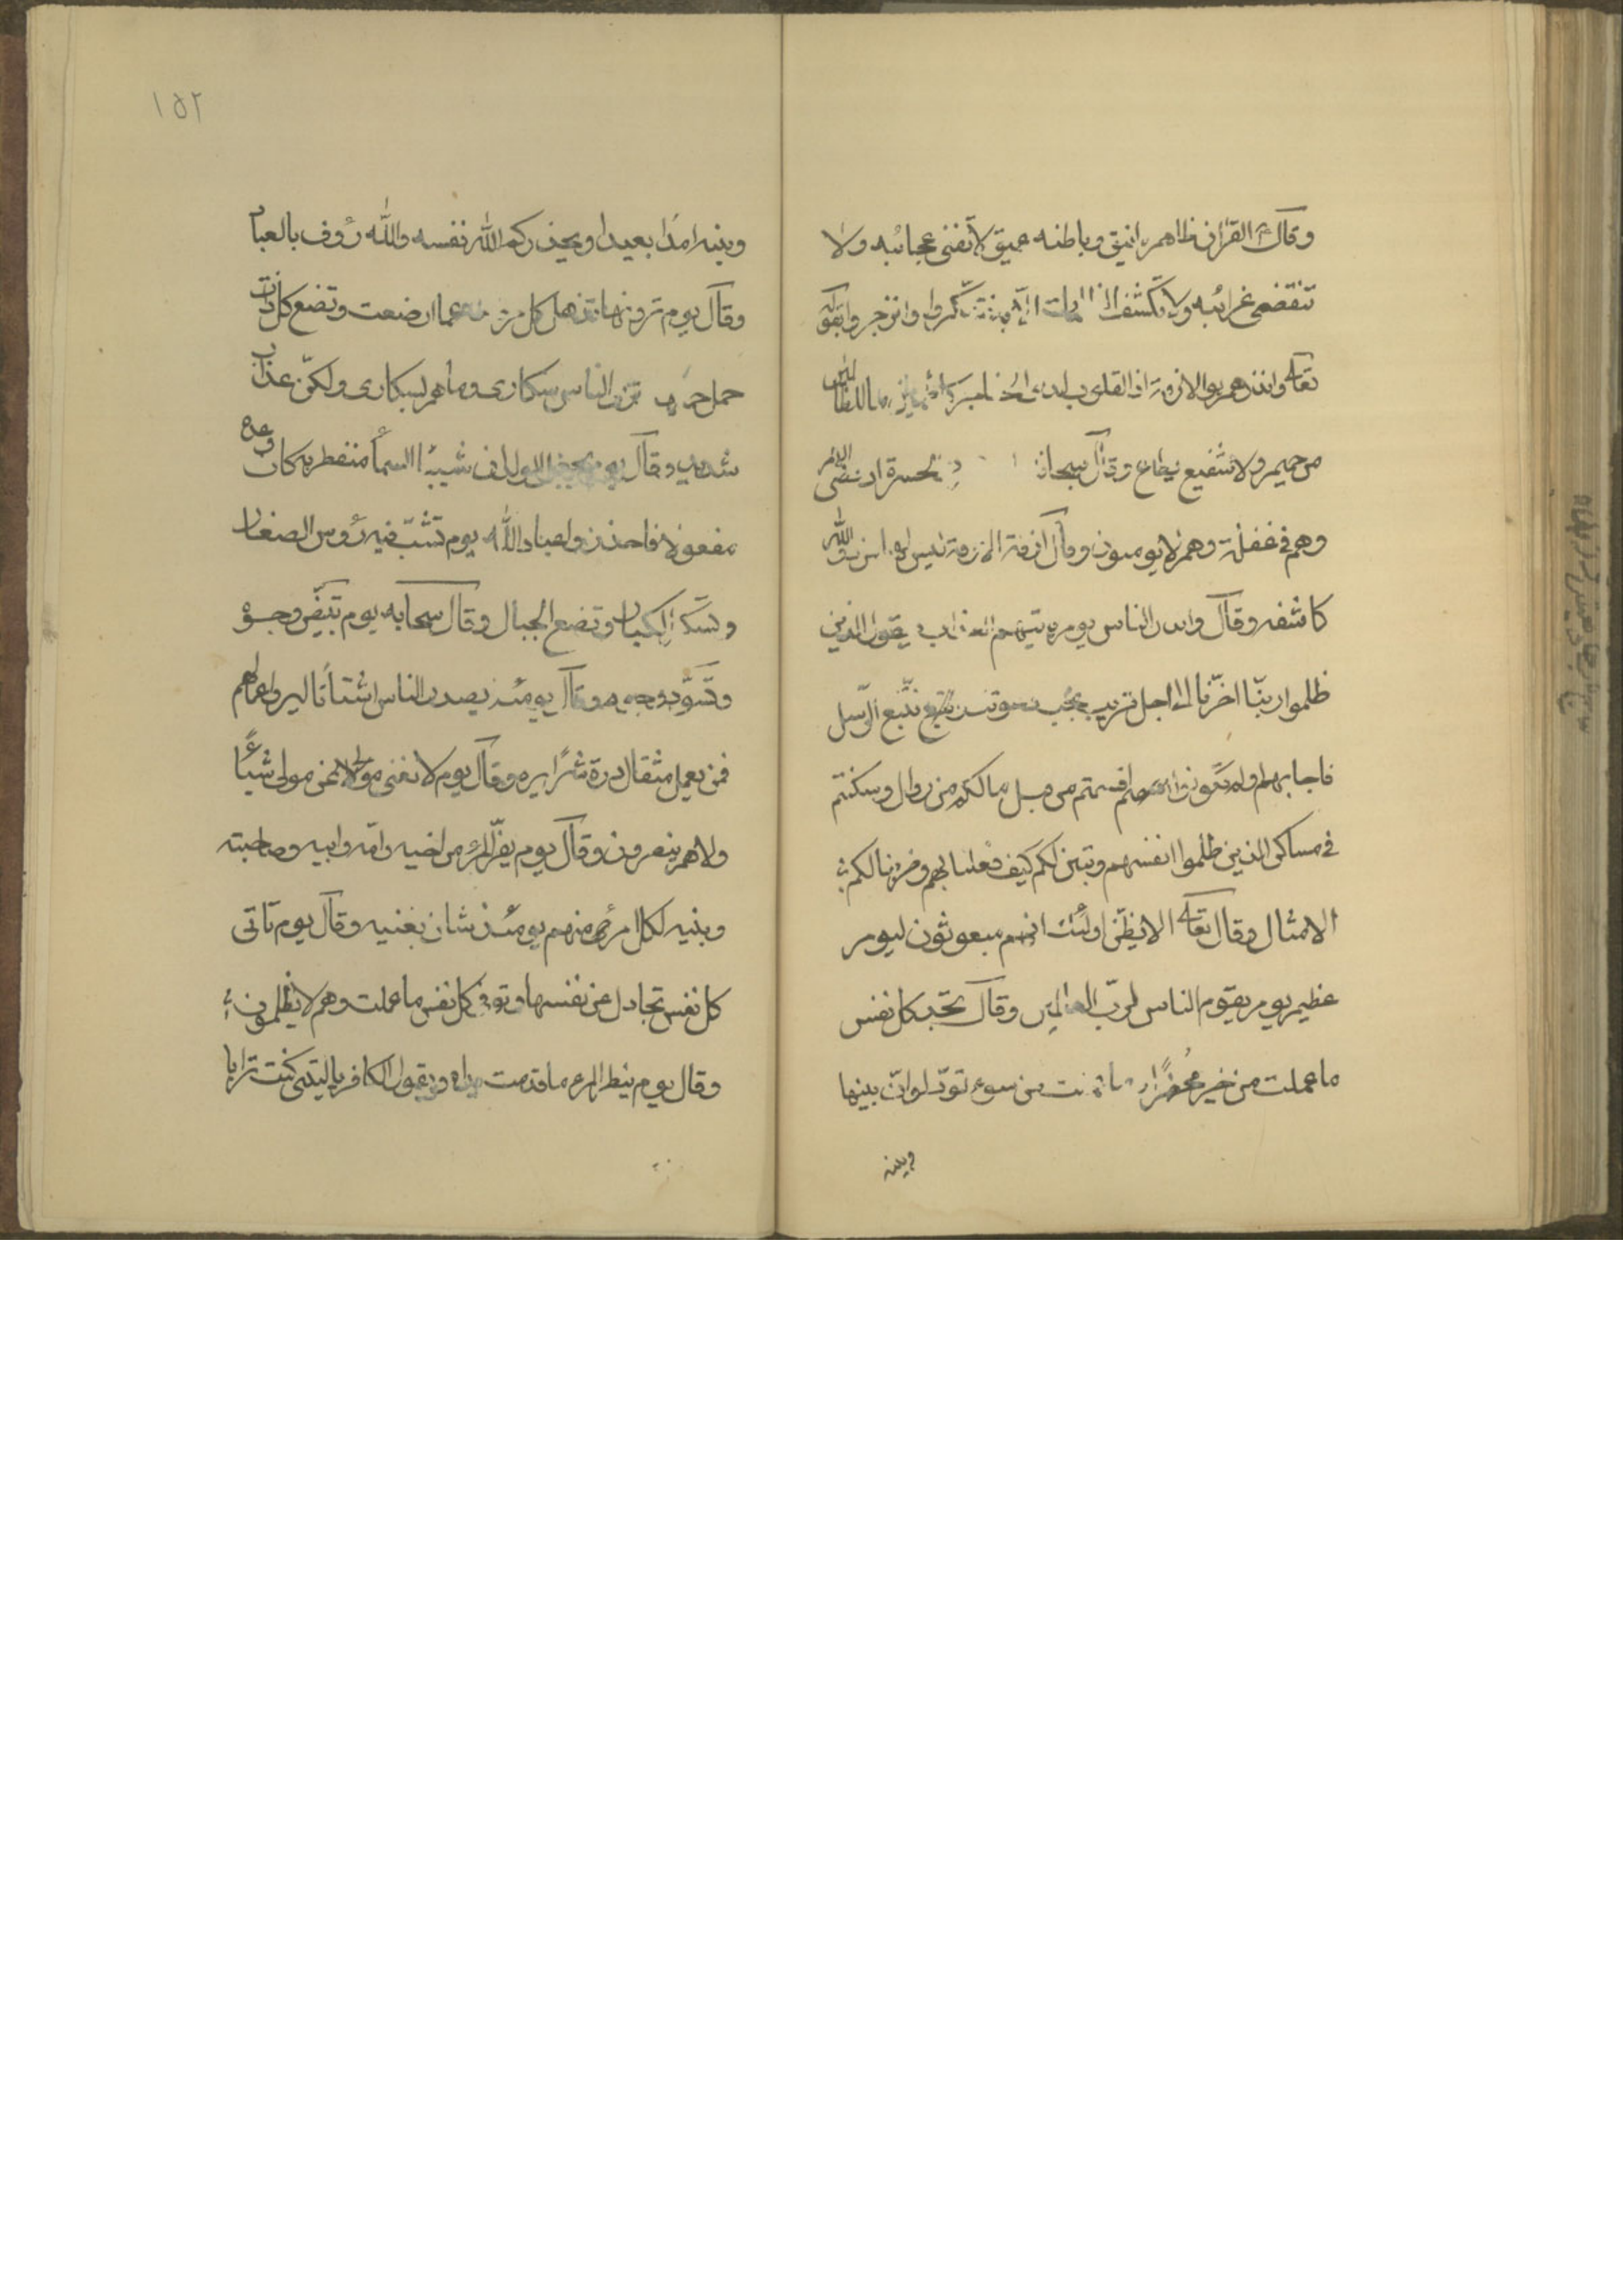 وقال ع القرآن ظاهره انيق وباطنه عميق لا تفنى عجائبه ولا
تنقضى غرائبه ولا تكشف الظلمات الا به فتذكروا وانزجروا بقوله
تعالى وانذرهم يوم الازفة اذ القلوب لدى الحناجر كاظمين ما للظالمين
من حميم ولا شفيع يطاع وقال سبحانه الحسرة اذ قضى الامر
وهم فى غفلة وهم لا يومنون وقال ازفة الازفة ليس لها من دون الله
كاشفه وقال وانذر الناس يوم ياتيهم العذاب فيقول الذين
ظلموا ربنا اخرنا الى اجل قريب نجب دعوتك ونتبع الرسل
فاجابهم اولم تكونوا اقسمتم من قبل ما لكم من زوال وسكنتم
فى مساكن الذين ظلموا انفسهم وتبين لكم كيف فعلنا بهم وضربنا لكم
الامثال وقال تعالى الا يظن اولئك انهم مبعوثون ليوم
عظيم يوم يقوم الناس لرب العالمين وقال تجد كل نفس
ما عملت من خير محضرا وما عملت من سوء تود لو ان بينها
وبينه
١٥٢
وبينه امدا بعيدا ويحذركم الله نفسه والله رؤف بالعباد
وقال يوم ترونها تذهل كل مرضعة عما ارضعت وتضع كل ذات
حمل حملها وترى الناس سكارى وما هم بسكارى ولكن عذاب
شديد وقال يوم يجعل الولدان شيبا السماء منفطر به كان وعده
مفعولا فاحذروا عباد الله يوم تشب فيه رؤس الصغار
وتسكر الكبار وتضع الحبال وقال سبحانه يوم تبيض وجوه
وتسود وجوه وقال يومئذ يصدر الناس اشتاتا ليروا اعمالهم
فمن يعمل مثقال ذرة شرا يره وقال يوم لا يغنى مولى عن مولى شيئا
ولا هم ينصرون وقال يوم يفر المرء من اخيه وامه وابيه وصاحبته
وبنيه لكل امرئ منهم يومئذ شان يغنيه وقال يوم تاتى
كل نفس تجادل عن نفسها وتوفى كل نفس ما عملت وهم لا يظلمون
وقال يوم ينظر المرء ما قدمت يداه ويقول الكافر يا ليتنى كنت ترابا